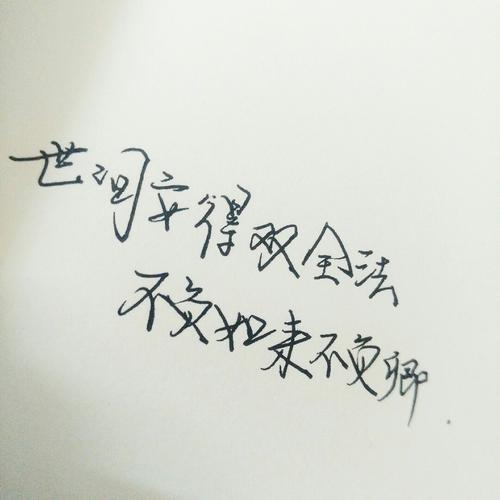 世间安得双全法
不负如来不负卿.